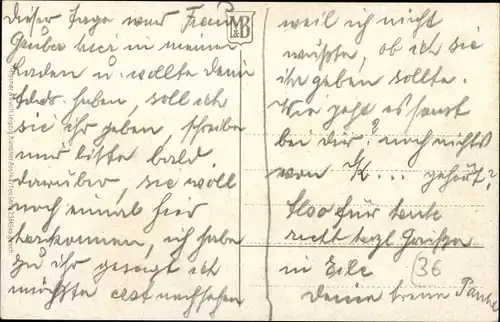 Dieser Tage war Frau
Gruber hier in meinem
Laden u. wollte Deine
haben, soll ich
sie ihr geben, schreibe
mir bitte bald
darüber, sie will
noch einmal hier
herkommen, ich habe
zu ihr gesagt ich
möchte erst nachsehen
M&B
weil ich nicht
wußte, ob ich sie
ihr geben sollte.
Wie geht es sonst
bei dir? noch nichts
von K... gehört?
Also für heute
recht herzl Grüße
in Eile
36
Deine treue